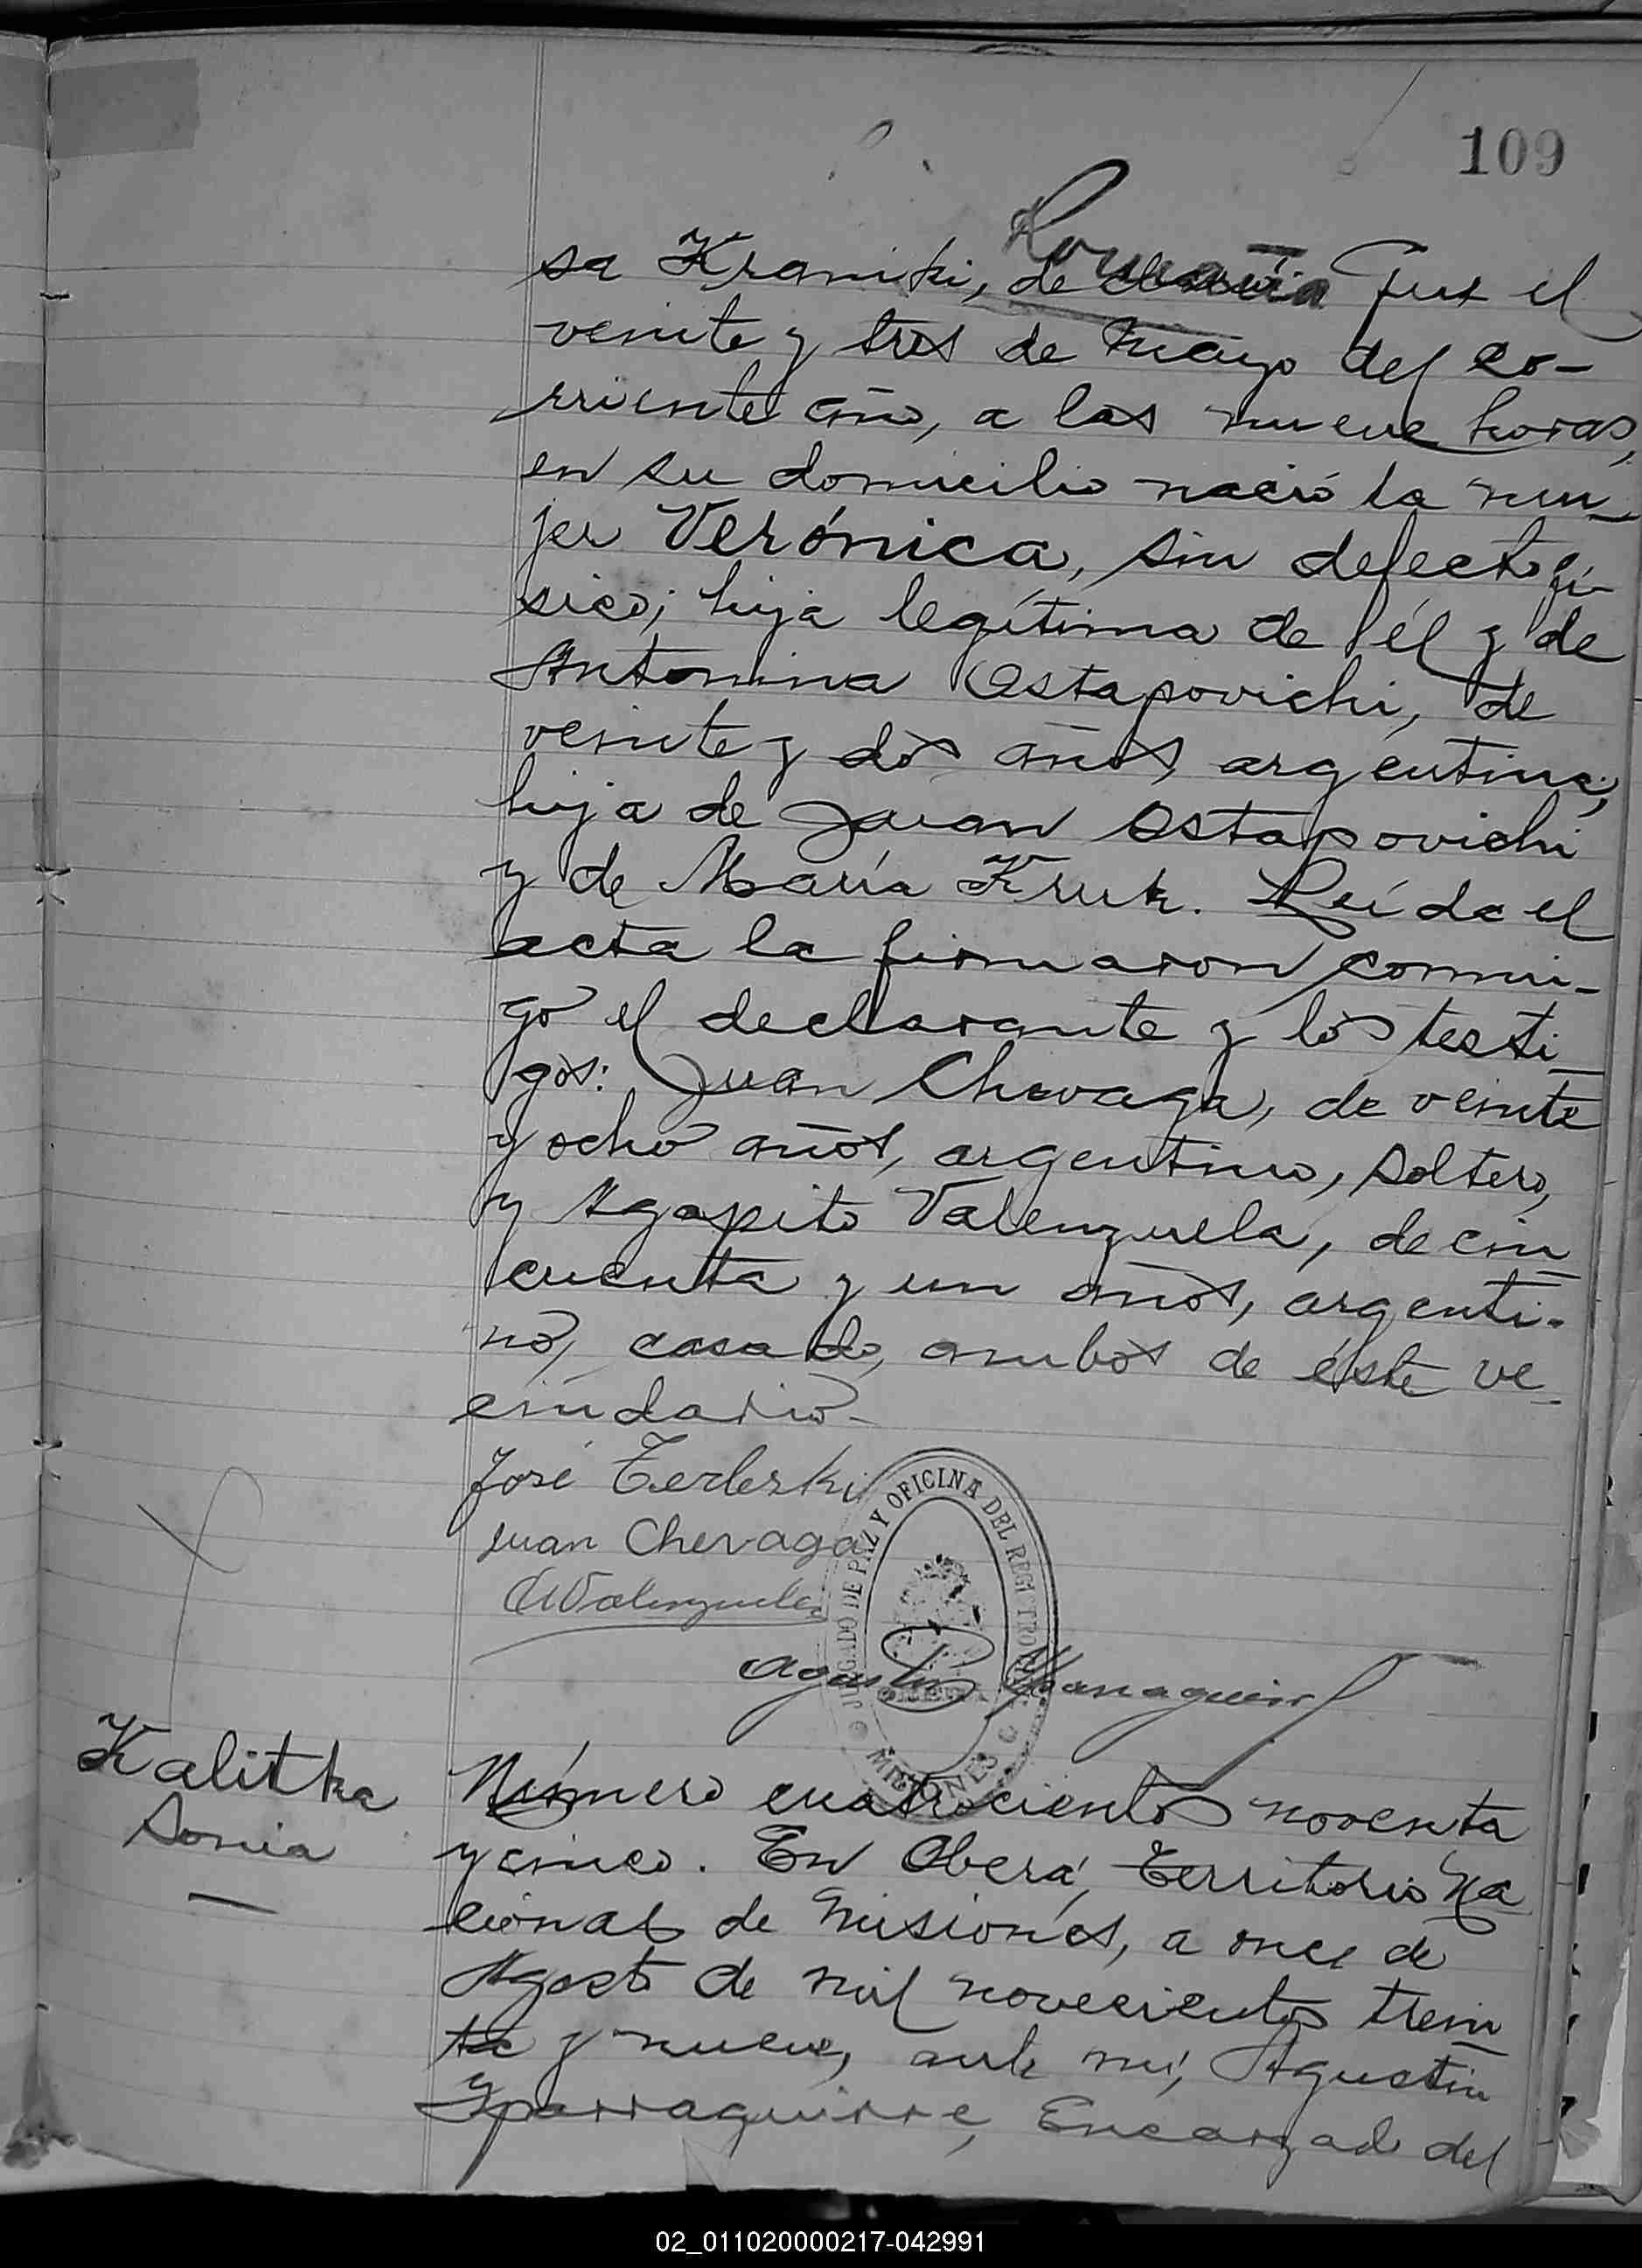 109
Rumania
sa Kraniki, de Que el
veinte y tres de Mayo del co-
rriente año, a las nueve horas,
en su domicilio nació la mu-
jer Verónica, sin defecto fí-
sico; hija legítima de él y de
Antonina Ostapovichi, de
veinte y dos años, argentina,
hija de Juan Ostapovichi
y de María Kruk. Leída el
acta la firmaron conmi-
go el declarante y los testi-
gos: Juan Chevaga, de veinte
y ocho años, argentino, soltero,
y Agapito Valenzuela, de cin-
cuenta y un años, argenti-
no, casado, ambos de éste ve-
cindario-
José Terleski
Juan Chevaga
AValenzuela
Agustín Yparraguirre
JUZGADO DE PAZ Y OFICINA DEL REGISTRO
MISIONES
Kalitka
Sonia
Número cuatrocientos noventa
y cinco. En Oberá, Territorio Na
cional de Misiones, a once de
Agosto de mil novecientos trein
ta y nueve, ante mí, Agustín
Yparraguirre, Encargado del
02_011020000217-042991